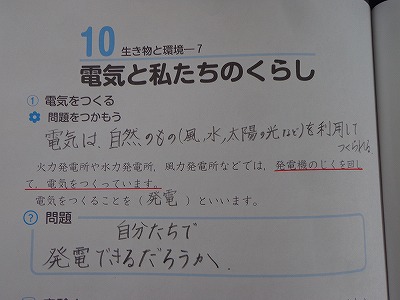 10 生き物と環境―7
電気と私たちのくらし
① 電気をつくる
問題をつかもう
電気は、自然のもの(風,水,太陽の光など)を利用して
つくられる。
火力発電所や水力発電所，風力発電所などでは，発電機のじくを回し
て，電気をつくっています。
電気をつくることを（発電）といいます。
? 問題
自分たちで
発電できるだろうか。